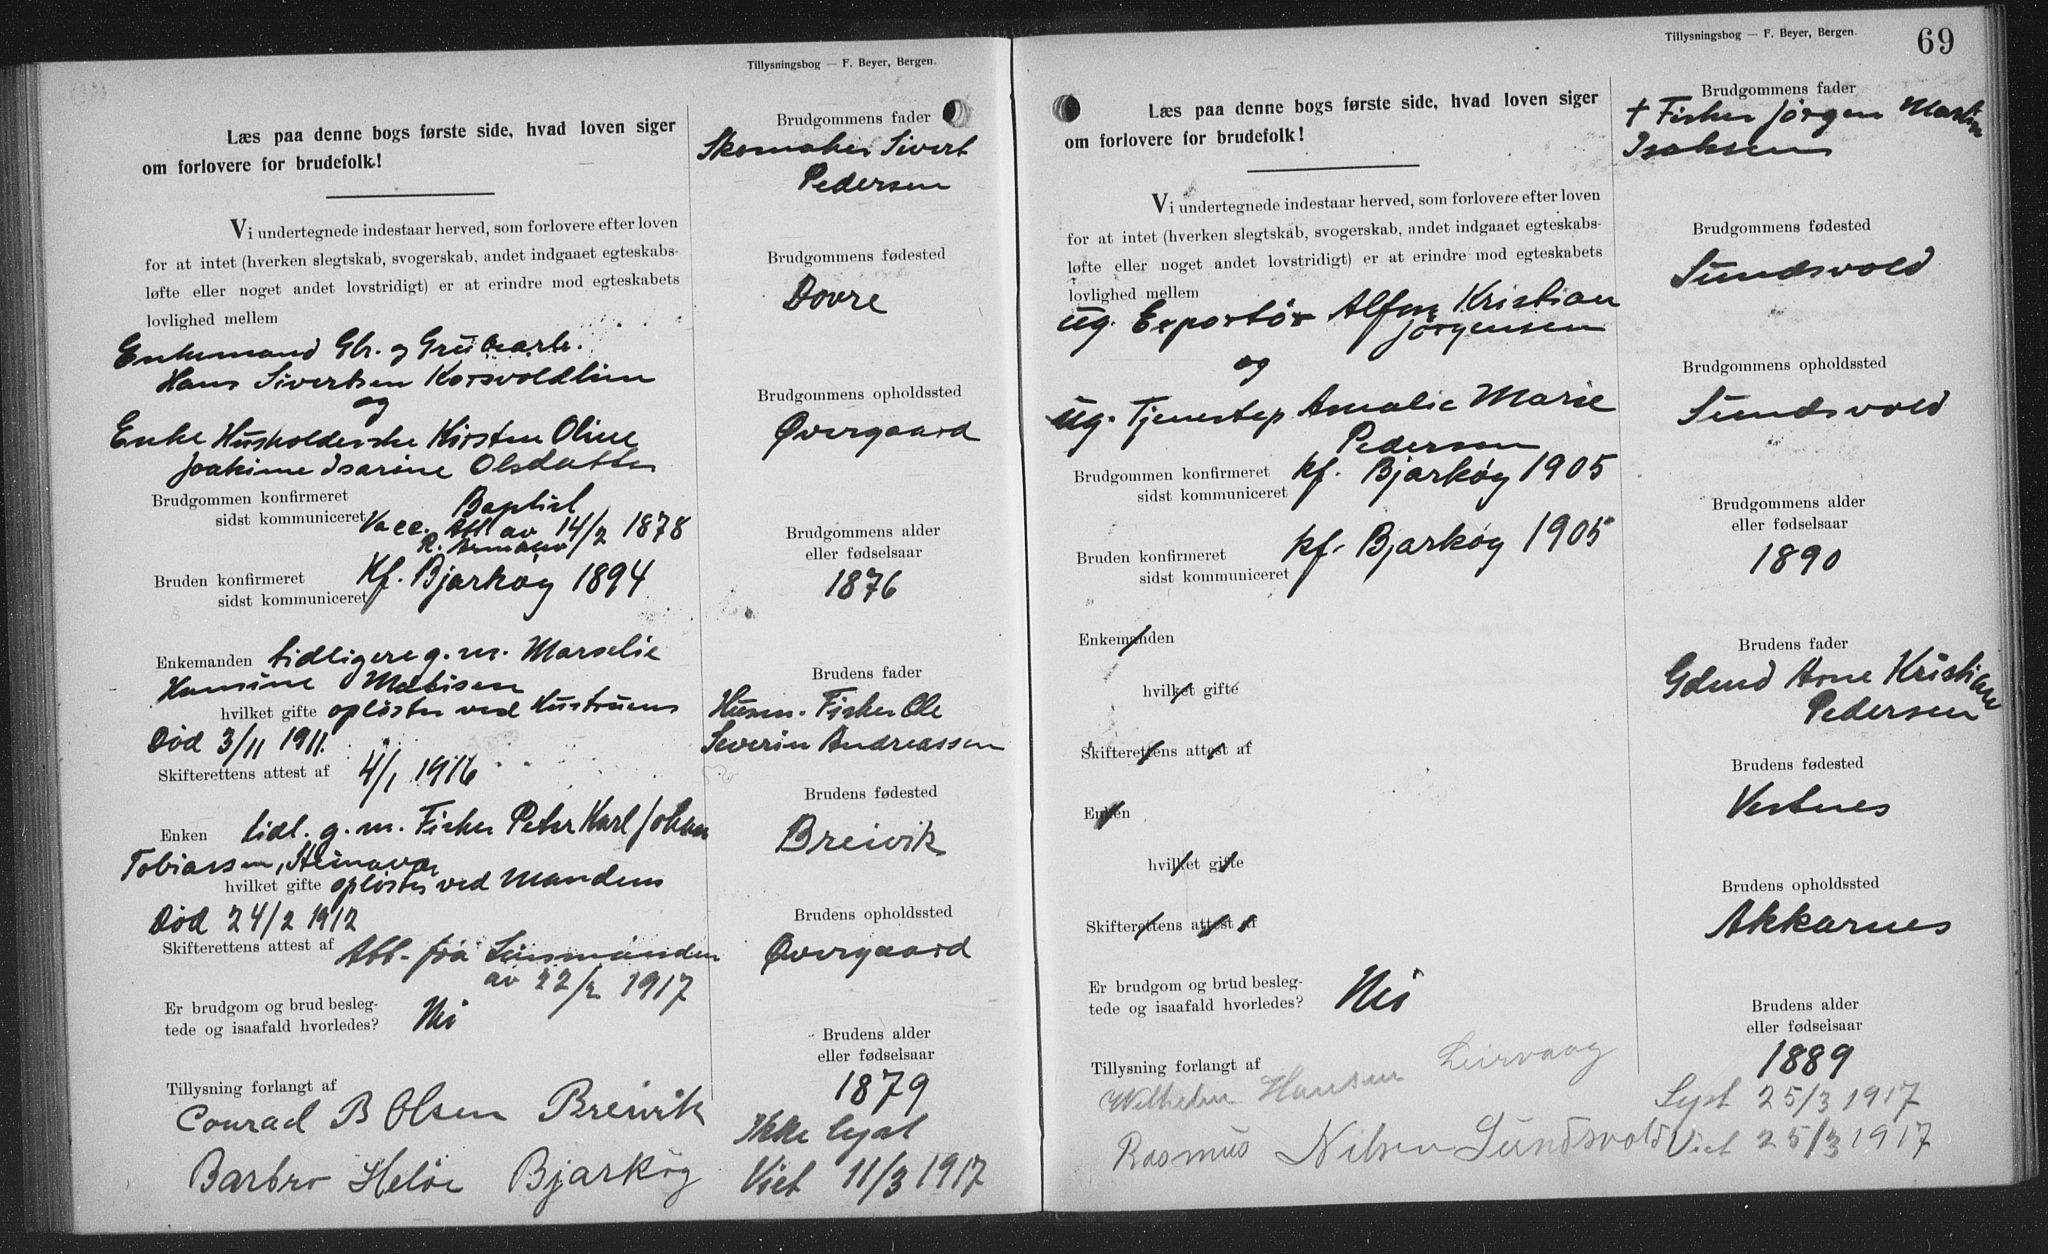 Tillysningsbog — F. Beyer, Bergen.
Læs paa denne bogs første side, hvad loven siger
om forlovere for brudefolk!
Vi undertegnede indestaar herved, som forlovere efter loven
for at intet (hverken slegtskab, svogerskab, andet indgaaet egteskabs-
løfte eller noget andet lovstridigt) er at erindre mod egteskabets
lovlighed mellem
Enkemand Gbr. og Grubearb.
Hans Sivertsen Korsvoldlien
og
Enke Husholderske Kirsten Oline
Joakime Isarine Olsdatter
Brudgommen konfirmeret
sidst kommuniceret
Baptist
Vacc. Att av 14/2 1878
Bruden konfirmeret
sidst kommuniceret
Kf. Bjarkøy 1894
Enkemanden tidligere g. m. Marselie
Hansine Matisen
hvilket gifte opløstes ved Hustruens
Død 3/11 1911.
Skifterettens attest af 4/1 1916
Enken tidl. g. m. Fisker Peter Karl Johan
Tobiassen, Steinavær
hvilket gifte opløstes ved Mandens
Død 24/2 1912
Skifterettens attest af Att. fra Lensmanden
av 22/2 1917
Er brudgom og brud besleg-
tede og isaafald hvorledes? Nei
Tillysning forlangt af
Conrad B Olsen Breivik
Barbro Heløe Bjarkøy
Brudgommens fader
Skomaker Sivert
Pedersen
Brudgommens fødested
Dovre
Brudgommens opholdssted
Øvergaard
Brudgommens alder
eller fødselsaar
1876
Brudens fader
Husm. Fisker Ole
Severin Andreassen
Brudens fødested
Breivik
Brudens opholdssted
Øvergaard
Brudens alder
eller fødselsaar
1879
Ikke lyst
Viet 11/3 1917
Tillysningsbog — F. Beyer, Bergen.
69
Læs paa denne bogs første side, hvad loven siger
om forlovere for brudefolk!
Vi undertegnede indestaar herved, som forlovere efter loven
for at intet (hverken slegtskab, svogerskab, andet indgaaet egteskabs-
løfte eller noget andet lovstridigt) er at erindre mod egteskabets
lovlighed mellem
Ug. Exportør Alfon Kristian
Jørgensen
og
Ug. Tjenestep Amalie Marie
Pedersen
Brudgommen konfirmeret
sidst kommuniceret
kf. Bjarkøy 1905
Bruden konfirmeret
sidst kommuniceret
kf. Bjarkøy 1905
Enkemanden
hvilket gifte
Skifterettens attest af
Enken
hvilket gifte
Skifterettens attest af
Er brudgom og brud besleg-
tede og isaafald hvorledes? Nei
Tillysning forlangt af
Wilhelm Hansen Leirvaag
Rasmus Nilsen Sundsvold
Brudgommens fader
† Fisker Jørgen Martin
Isaksen
Brudgommens fødested
Sundsvold
Brudgommens opholdssted
Sundsvold
Brudgommens alder
eller fødselsaar
1890
Brudens fader
Gdmd Arne Kristian
Pedersen
Brudens fødested
Vestnes
Brudens opholdssted
Akkarnes
Brudens alder
eller fødselsaar
1889
Lyst 25/3 1917
Viet 25/3 1917